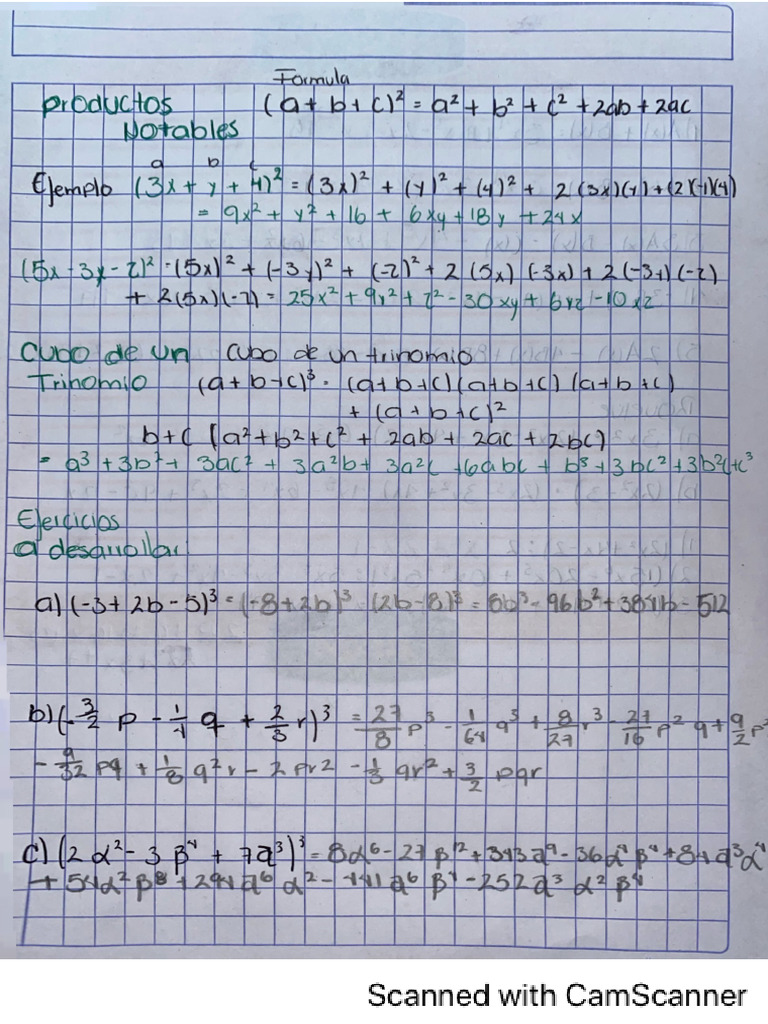 Formula
Productos (a + b + c)² = a² + b² + c² + 2ab + 2ac
Notables
a b c
Ejemplo (3x + y + 4)² = (3x)² + (y)² + (4)² + 2(3x)(y) + (2)(-1)(4)
= 9x² + y² + 16 + 6xy + 18y + 24x
(5x - 3y - z)² = (5x)² + (-3y)² + (-z)² + 2(5x)(-3x) + 2(-3y)(-z)
+ 2(5x)(-z) = 25x² + 9y² + z² - 30xy + 6yz - 10xz
Cubo de un Cubo de un trinomio
Trinomio (a + b + c)³ = (a + b + c)(a + b + c)(a + b + c)
+ (a + b + c)²
b + c (a² + b² + c² + 2ab + 2ac + 2bc)
= a³ + 3b² + 3ac² + 3a²b + 3a²c + 6abc + b³ + 3bc² + 3b²c + c³
Ejercicios
a desarrollar:
a) (-3 + 2b - 5)³ = (-8 + 2b)³ (2b - 8)³ = 8b³ - 96b² + 384b - 512
b) (-3/2 p - 1/4 q + 2/3 r)³ = 27/8 p³ - 1/64 q³ + 8/27 r³ - 27/16 p² q + 9/2 p²
- 9/32 pq + 1/8 q²r - 2 pr2 - 1/3 qr² + 3/2 pqr
c) (2α² - 3β⁴ + 7a³)³ = 8α⁶ - 27β¹² + 343a⁹ - 36α⁴β⁴ + 84a³α⁴
+ 54α²β⁸ + 294a⁶α² - 441a⁶β⁴ - 252a³α²β⁴
Scanned with CamScanner